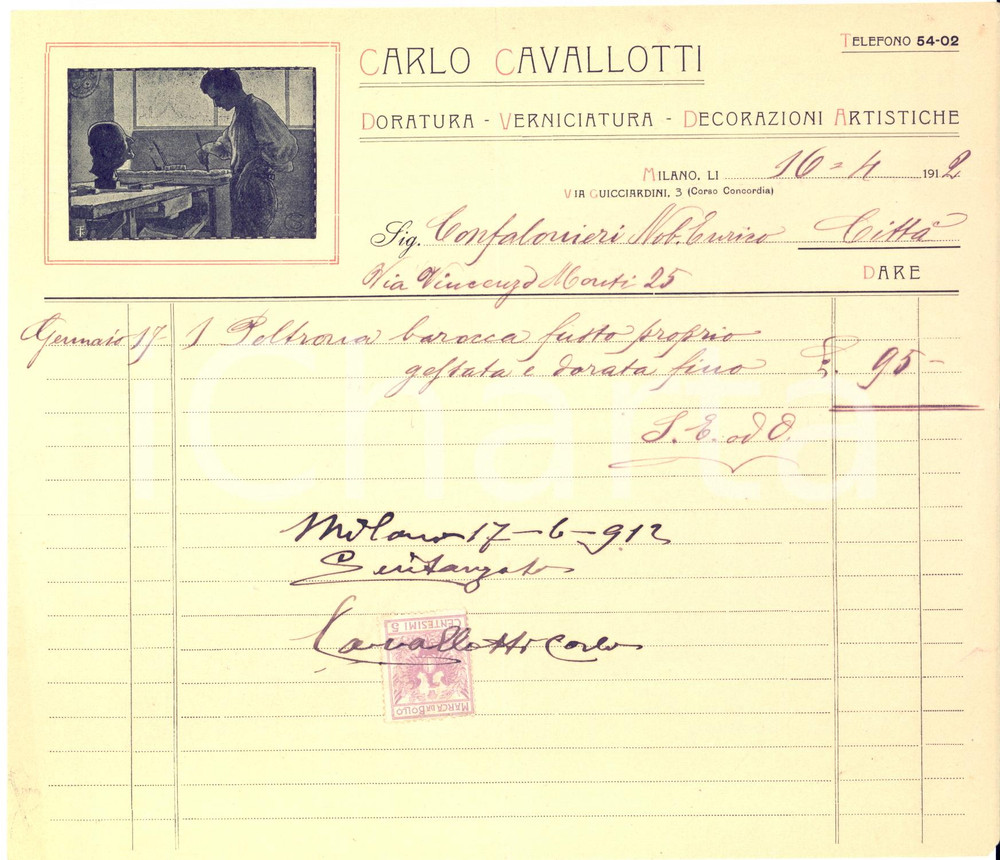 TELEFONO 54-02
CARLO CAVALLOTTI
DORATURA - VERNICIATURA - DECORAZIONI ARTISTICHE
MILANO, LI 16 = 4 1912
VIA GUICCIARDINI, 3 (Corso Concordia)
Sig. Confalonieri Nob. Enrico Città
Via Vincenzo Monti 25
DARE
Gennaio 17 - 1 Poltrona barocca fusto proprio
gessata e dorata fino £. 95 -
S. E. od O.
iCharta
Milano 17-6-912
Cavallotti Carlo
CENTESIMI 5
MARCA DA BOLLO